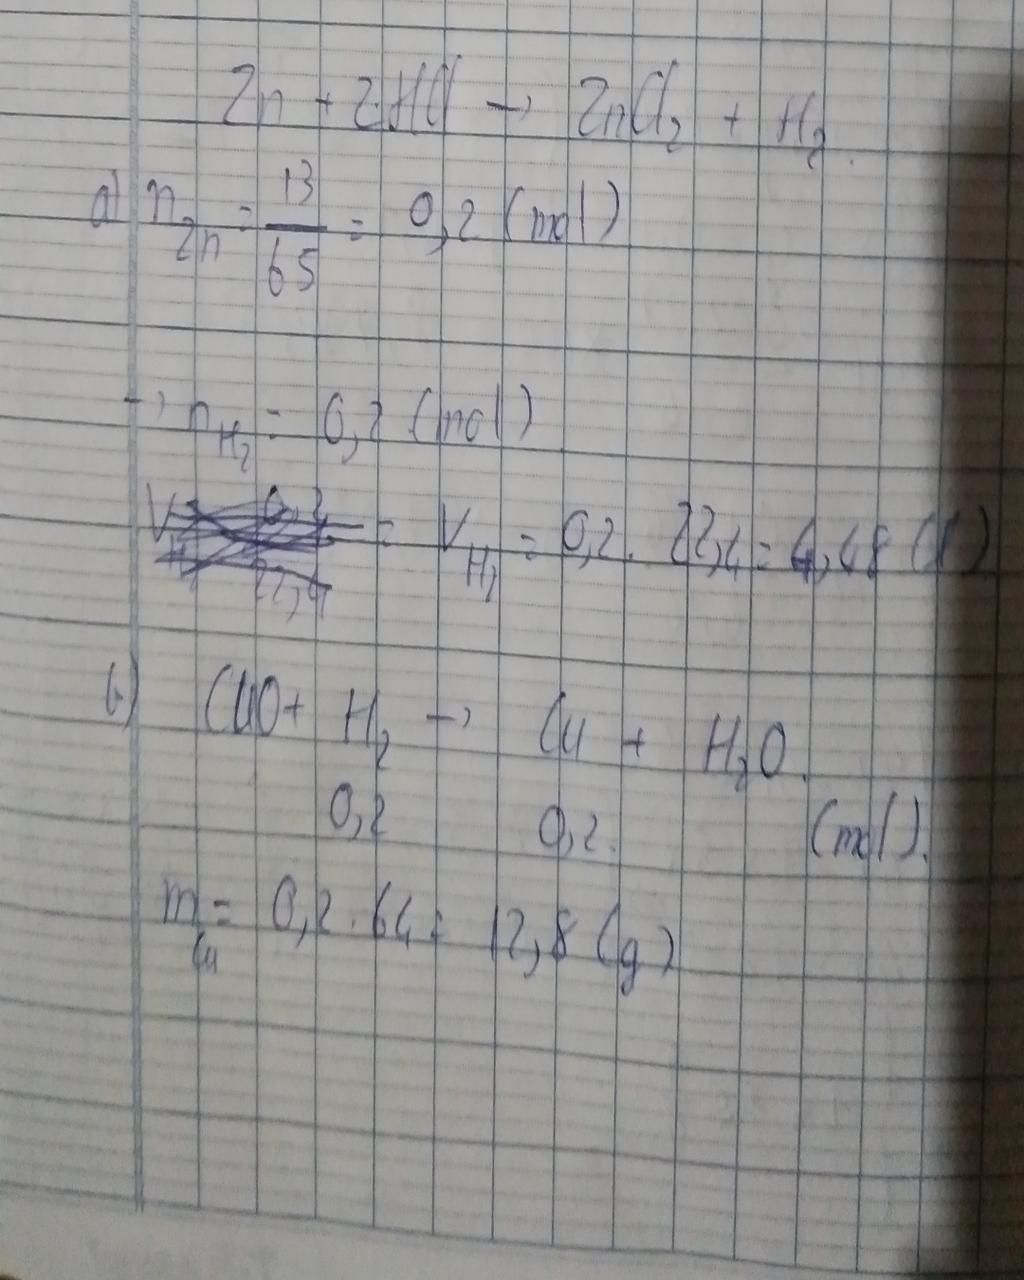 Zn + 2HCl → ZnCl₂ + H₂.
a) n Zn = 13/65 = 0,2 (mol)
→ n H₂ = 0,2 (mol)
= V H₂ = 0,2 . 22,4 = 4,48 (l)
b) CuO + H₂ → Cu + H₂O.
0,2 0,2. (mol).
m Cu = 0,2 . 64 = 12,8 (g)